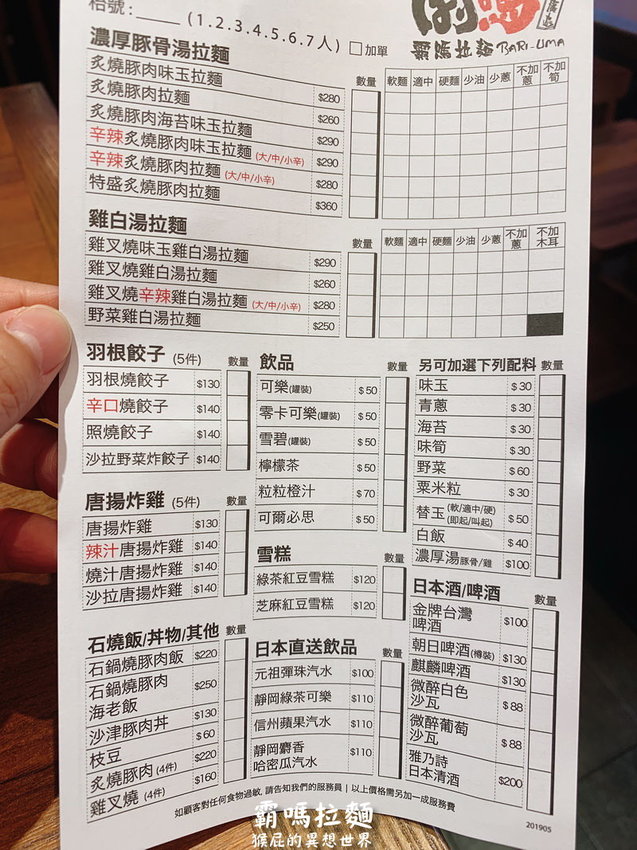 枱號:____ (1.2.3.4.5.6.7人) □加單
霸嗎拉麵 BARI-UMA
濃厚豚骨湯拉麵 數量 軟麵 適中 硬麵 少油 少蔥 不加蔥 不加筍
炙燒豚肉味玉拉麵 $280
炙燒豚肉拉麵 $260
炙燒豚肉海苔味玉拉麵 $290
辛辣炙燒豚肉味玉拉麵 (大/中/小辛) $290
辛辣炙燒豚肉拉麵 (大/中/小辛) $280
特盛炙燒豚肉拉麵 $360
雞白湯拉麵 數量 軟麵 適中 硬麵 少油 少蔥 不加蔥 不加木耳
雞叉燒味玉雞白湯拉麵 $290
雞叉燒雞白湯拉麵 $260
雞叉燒辛辣雞白湯拉麵 (大/中/小辛) $280
野菜雞白湯拉麵 $250
羽根餃子 (5件) 數量
羽根燒餃子 $130
辛口燒餃子 $140
照燒餃子 $140
沙拉野菜炸餃子 $140
唐揚炸雞 (5件) 數量
唐揚炸雞 $130
辣汁唐揚炸雞 $140
燒汁唐揚炸雞 $140
沙拉唐揚炸雞 $140
石燒飯/丼物/其他 數量
石鍋燒豚肉飯 $220
石鍋燒豚肉
海老飯 $250
沙津豚肉丼 $130
枝豆 $60
炙燒豚肉 (4件) $220
雞叉燒 (4件) $160
飲品 數量
可樂(罐裝) $50
零卡可樂(罐裝) $50
雪碧(罐裝) $50
檸檬茶 $50
粒粒橙汁 $70
可爾必思 $50
雪糕 數量
綠茶紅豆雪糕 $120
芝麻紅豆雪糕 $120
日本直送飲品 數量
元祖彈珠汽水 $100
靜岡綠茶可樂 $110
信州蘋果汽水 $110
靜岡麝香
哈密瓜汽水 $110
另可加選下列配料 數量
味玉 $30
青蔥 $30
海苔 $30
味筍 $30
野菜 $60
粟米粒 $30
替玉 (軟/適中/硬) (即起/叫起) $50
白飯 $40
濃厚湯 豚骨/雞 $100
日本酒/啤酒 數量
金牌台灣
啤酒 $100
朝日啤酒(樽裝) $130
麒麟啤酒 $130
微醉白色
沙瓦 $88
微醉葡萄
沙瓦 $88
雅乃詩
日本清酒 $200
如顧客對任何食物過敏, 請告知我們的服務員 | 以上價格需另加一成服務費
201905
霸嗎拉麵
猴屁的異想世界